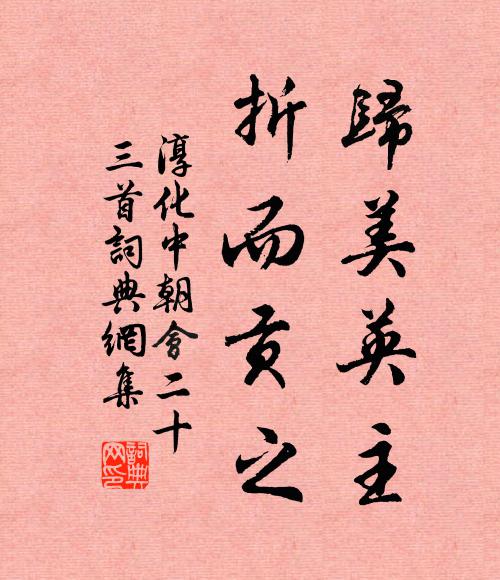 歸美英主
折而貢之
淳化中朝會二十
三首詞典網集
詞典
网印